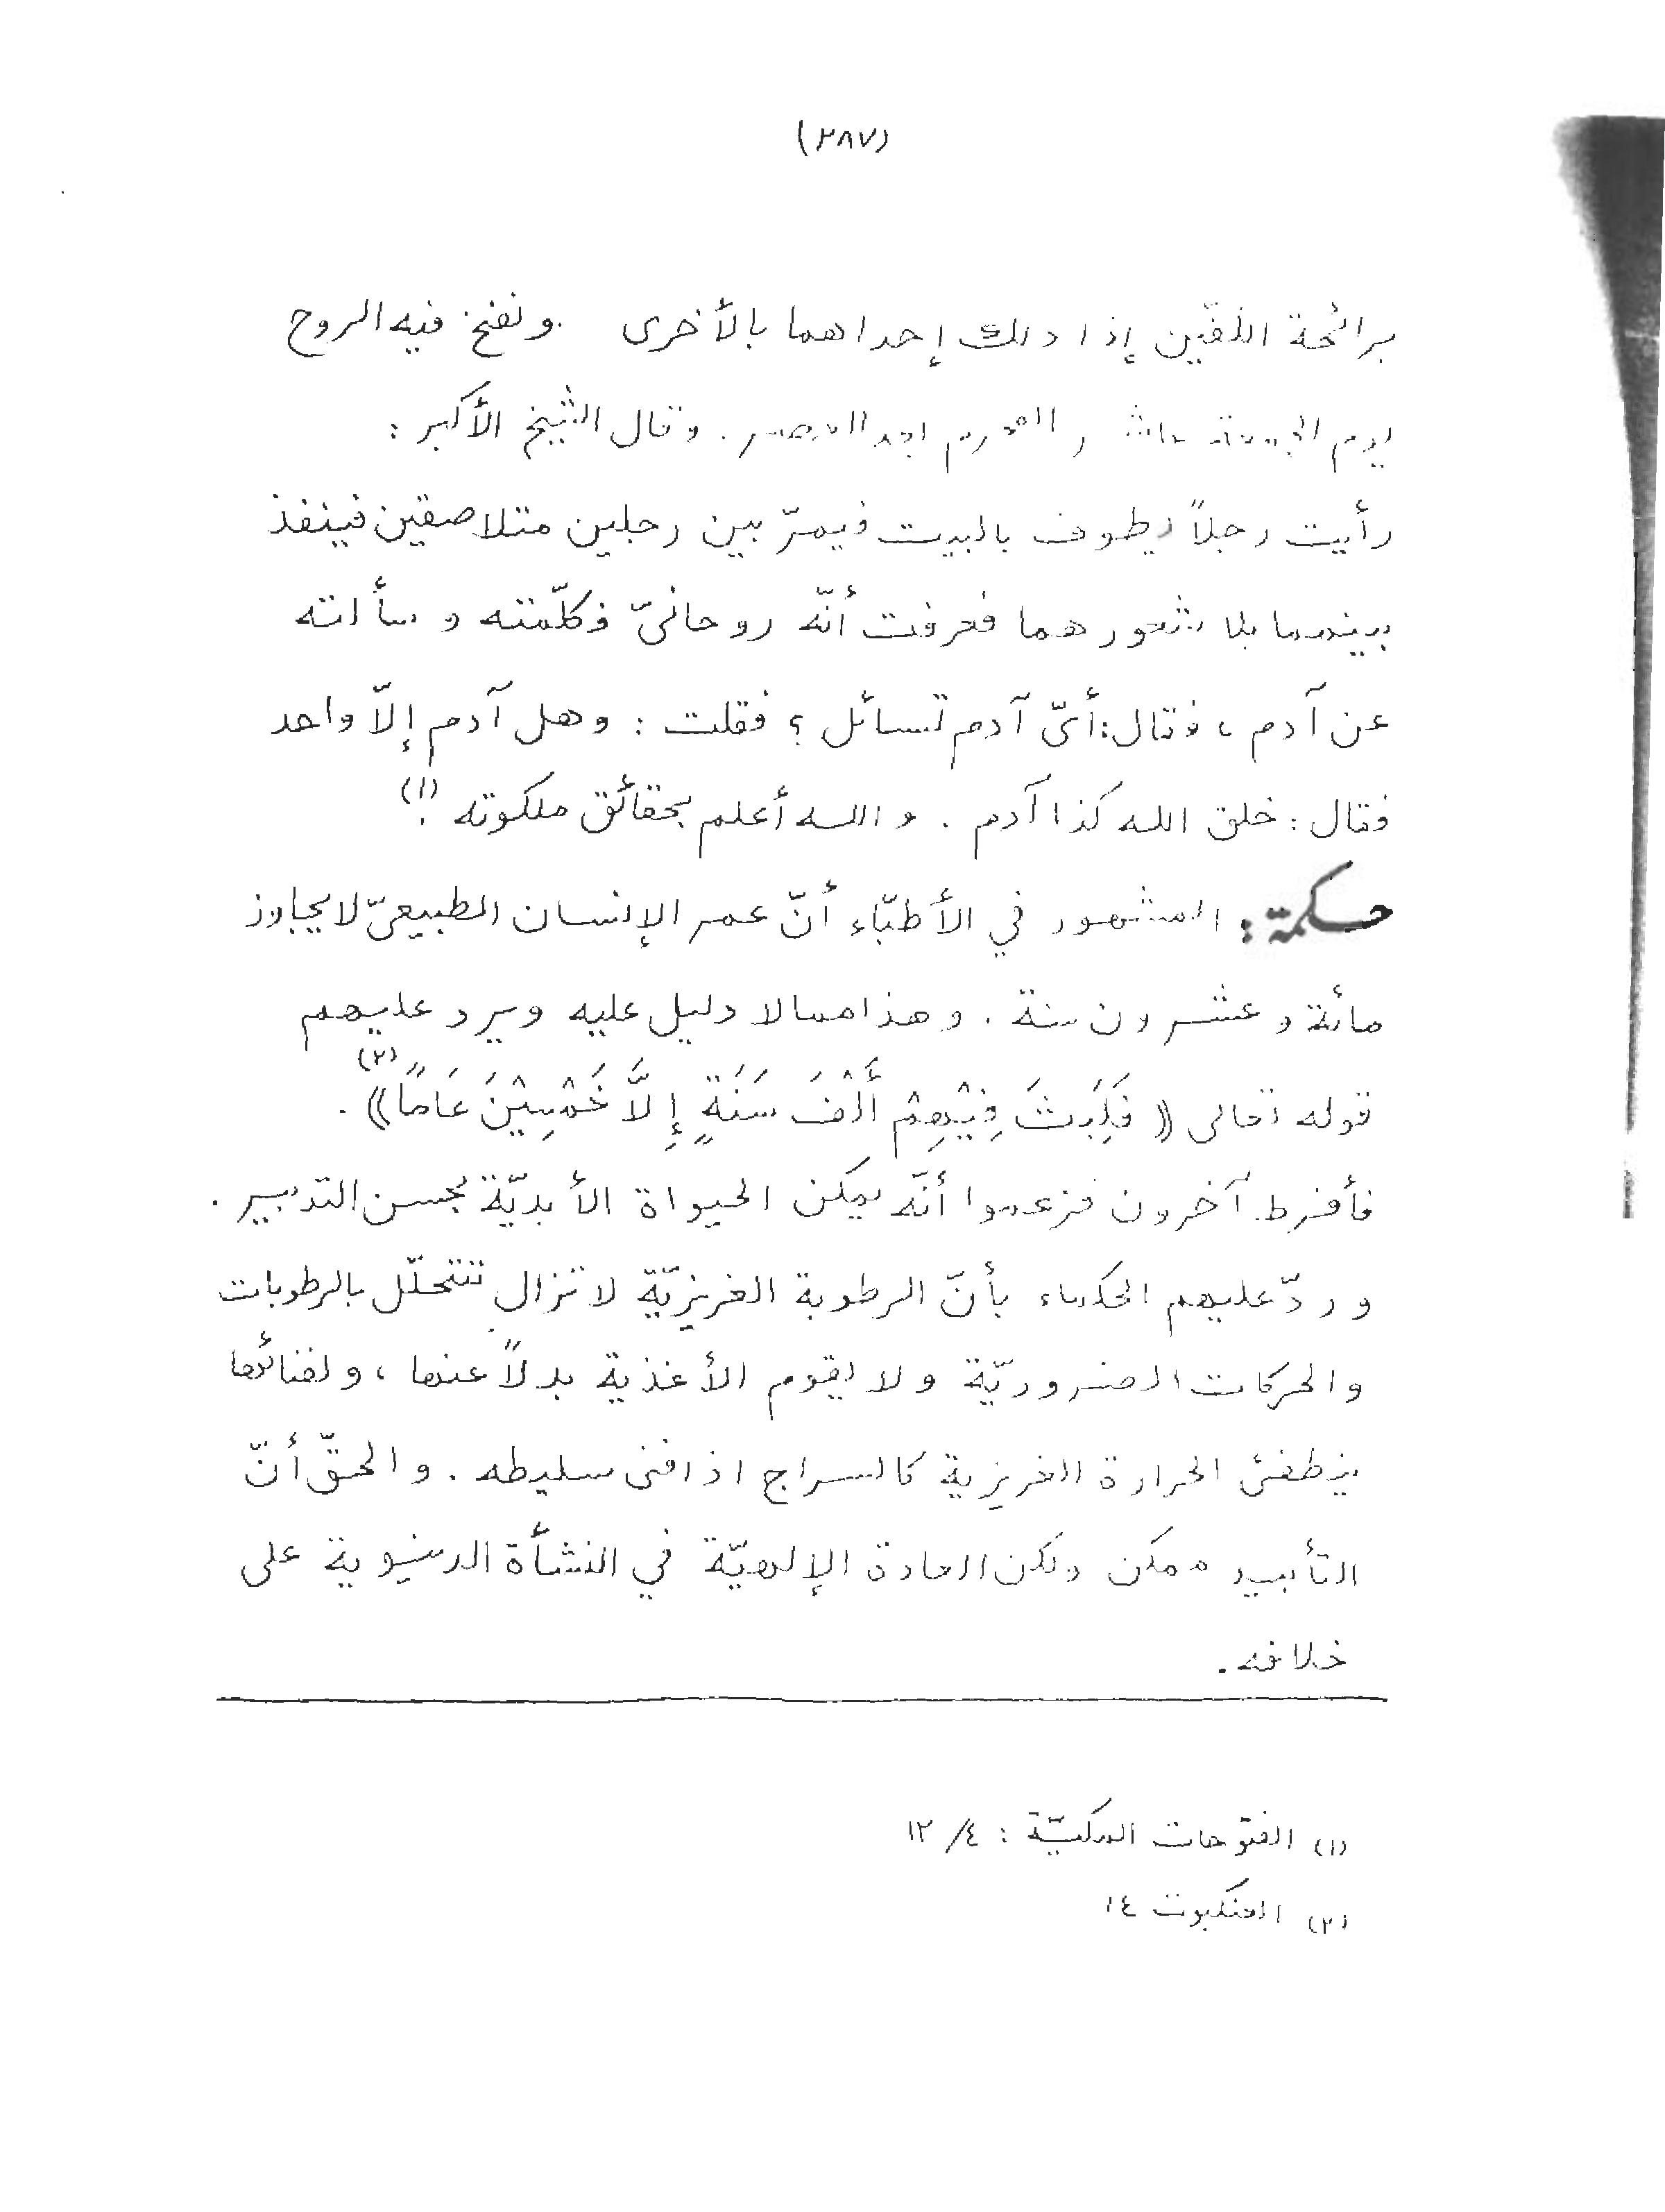 (٢٨٧)
برائحة الكفّين إذا دلك إحداهما بالأخرى . ونفخ فيه الروح
يوم الجمعة عاشر المحرم بعد العصر . وقال الشيخ الأكبر :
رأيت رجلاً يطوف بالبيت فيمرّ بين رجلين متلاصقين فينفذ
بينهما بلا شعورهما فعرفت أنّه روحانيّ فكلّمته و سألته
عن آدم ، فقال : أيّ آدم تسائل ؟ فقلت : وهل آدم إلاّ واحد
فقال : خلق الله كذا آدم . و الله أعلم بحقائق ملكوته . (١)
حكمة : المشهور في الأطبّاء أنّ عمر الإنسان الطبيعيّ لا يجاوز
مائة و عشرون سنة . و هذا مما لا دليل عليه ويرد عليهم
قوله تعالى ((فَلَبِثَ فِيْهِمْ أَلْفَ سَنَةٍ إِلاَّ خَمْسِيْنَ عَامًا)) (٢) .
فأفرط آخرون فزعموا أنّه يمكن الحيواة الأبديّة بحسن التدبير .
و ردّ عليهم الحكماء بأنّ الرطوبة الغريزيّة لا تزال تتحلّل بالرطوبات
والحركات الضروريّة ولا يقوم الأغذية بدلاً عنها ، و لفنائها
ينطفئ الحرارة الغريزية كالسراج اذا فنى سليطه . و الحقّ أنّ
التأبيد ممكن ولكن العادة الإلهيّة في النشأة الدنيوية على
خلافه .
(١) الفتوحات المكيّة : ٤/ ١٢
(٢) العنكبوت ١٤